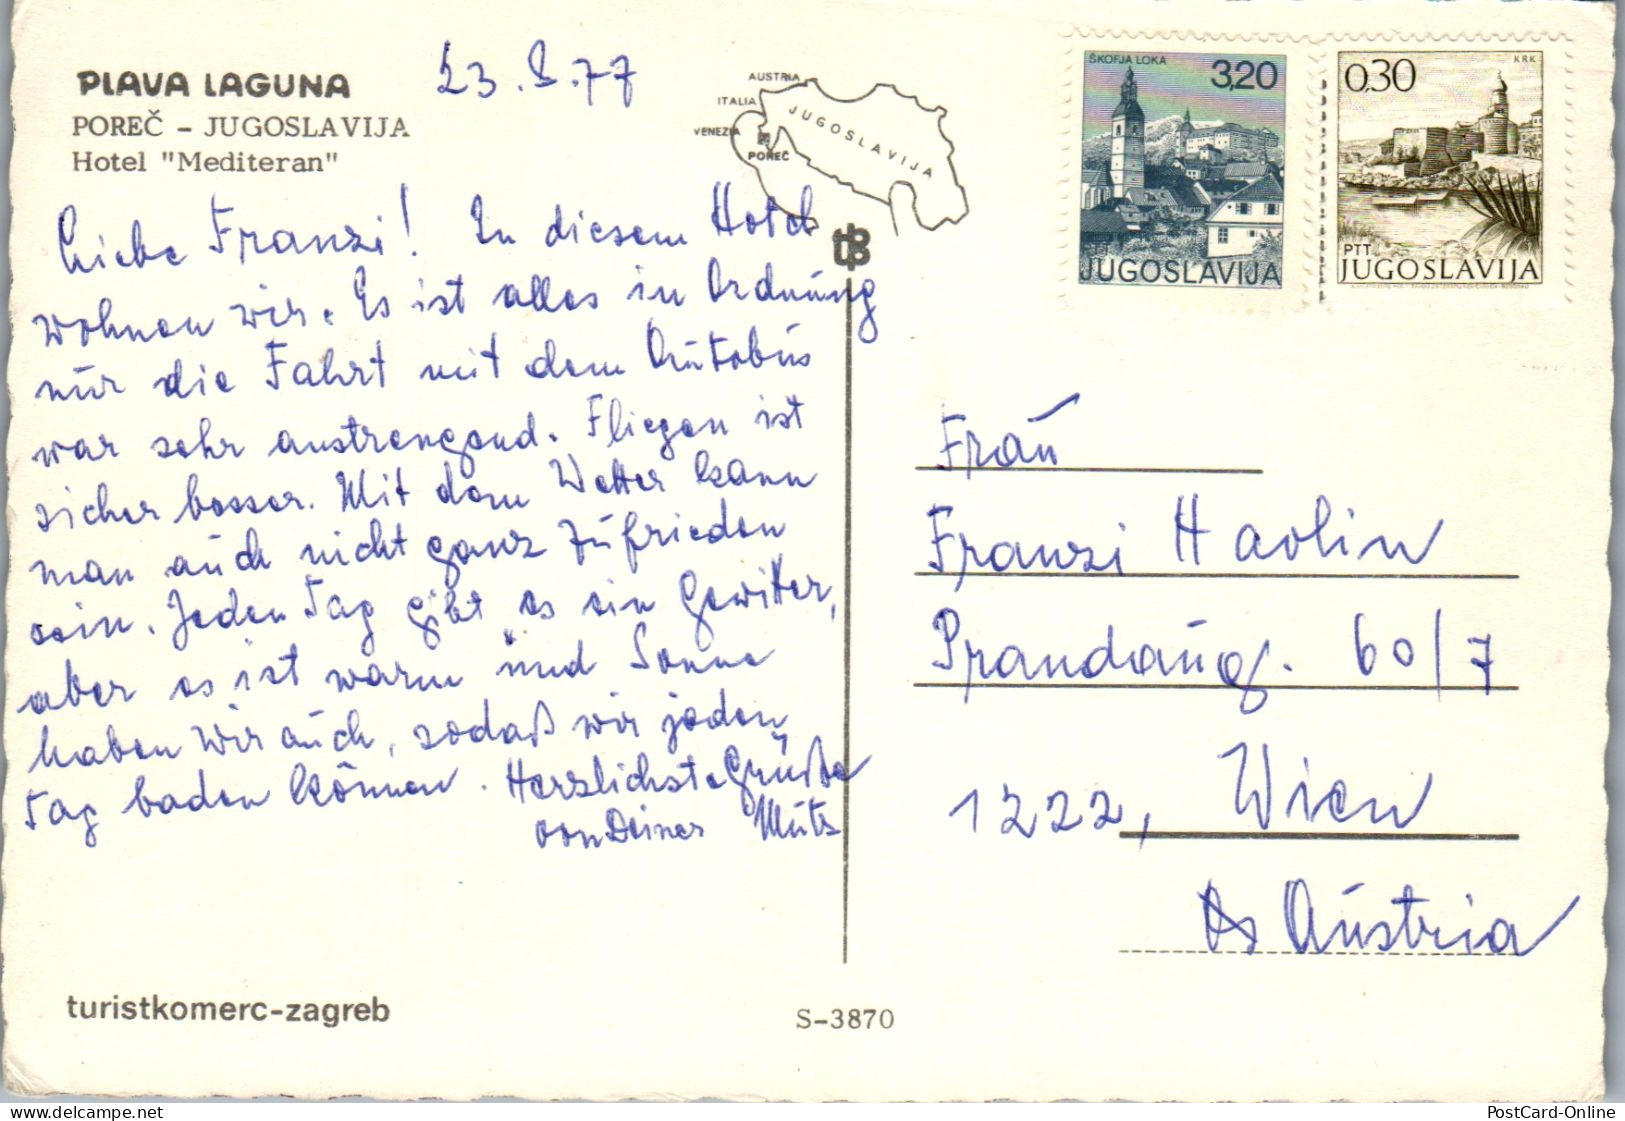 PLAVA LAGUNA
POREČ - JUGOSLAVIJA
Hotel "Mediteran"
23.8.77
Liebe Franzi! In diesem Hotel
wohnen wir. Es ist alles in Ordnung
nur die Fahrt mit dem Autobus
war sehr anstrengend. Fliegen ist
sicher besser. Mit dem Wetter kann
man auch nicht ganz zufrieden
sein. Jeden Tag gibt es ein Gewitter,
aber es ist warm und Sonne
haben wir auch, sodaß wir jeden
Tag baden können. Herzlichste Grüße
von Deiner Mutz
AUSTRIA
ITALIA
VENEZIA
POREČ
JUGOSLAVIJA
ŠKOFJA LOKA
3,20
JUGOSLAVIJA
KRK
0,30
PTT
JUGOSLAVIJA
Frau
Franzi Havlin
Prandaug. 60/7
1222, Wien
Austria
turistkomerc-zagreb
S-3870
delcampe.net
PostCard-Online